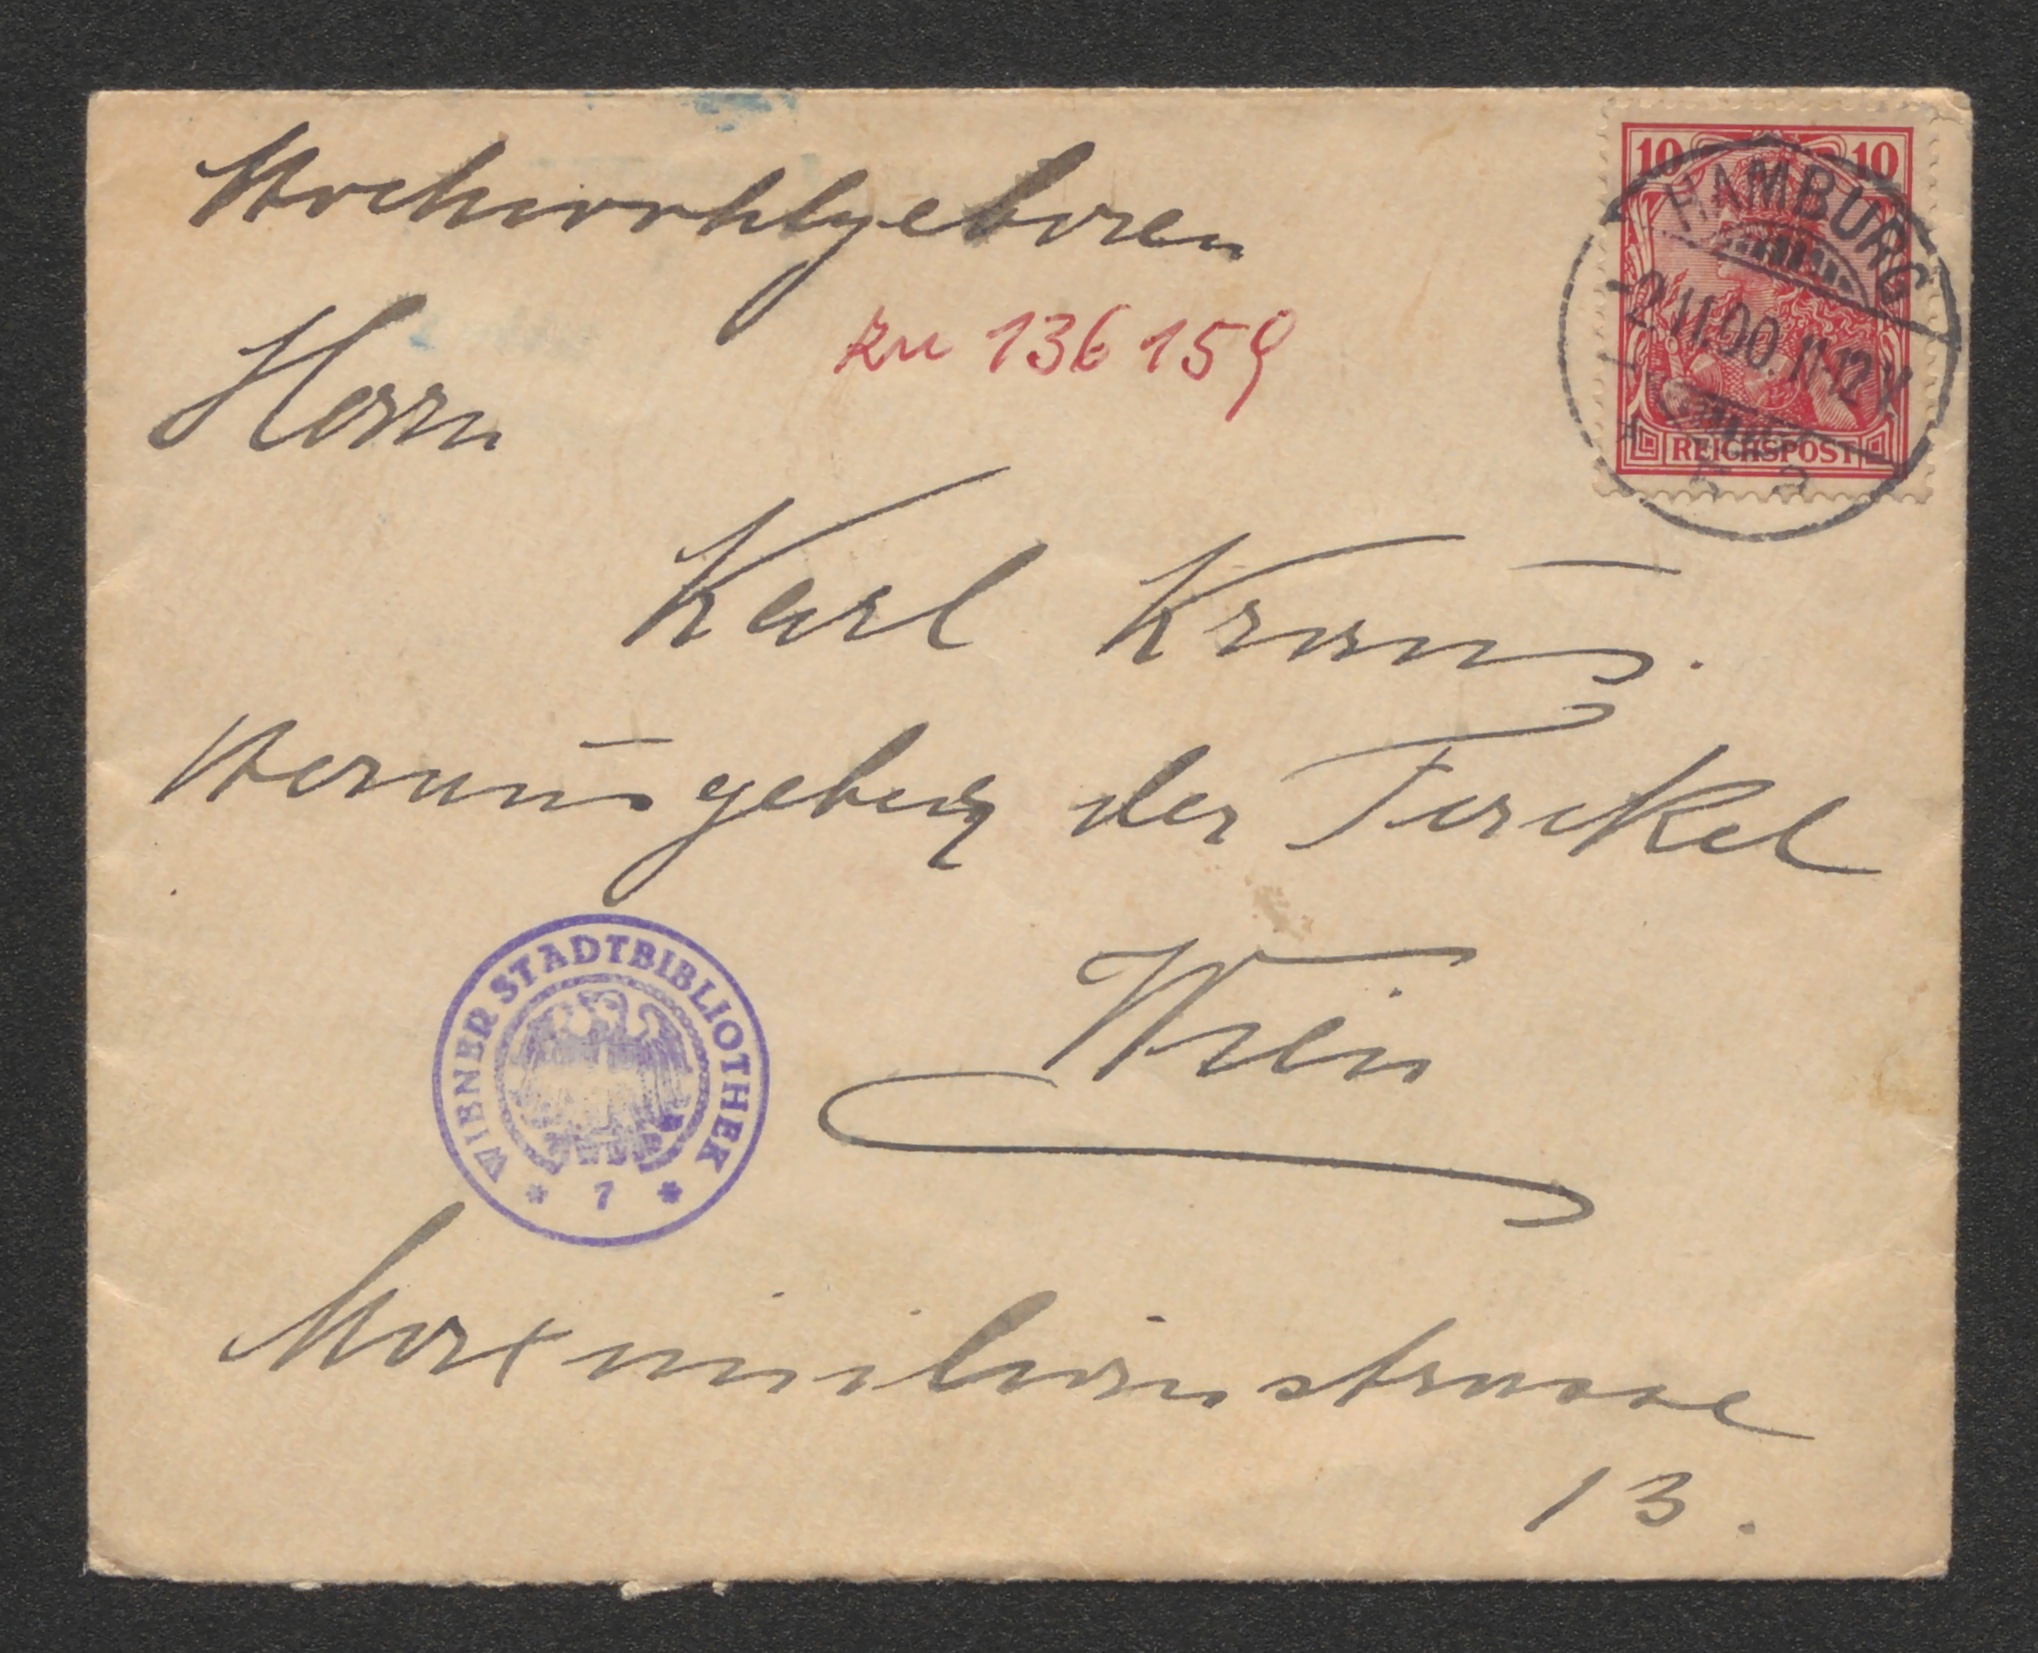 Hochwohlgeboren
Herrn
zu 136159
Karl Kraus.
Herausgeber der Fackel
Wien
Maximilianstrasse
13.
10 10
REICHSPOST
HAMBURG
2.11.00.11-12V
WIENER STADTBIBLIOTHEK
* 7 *